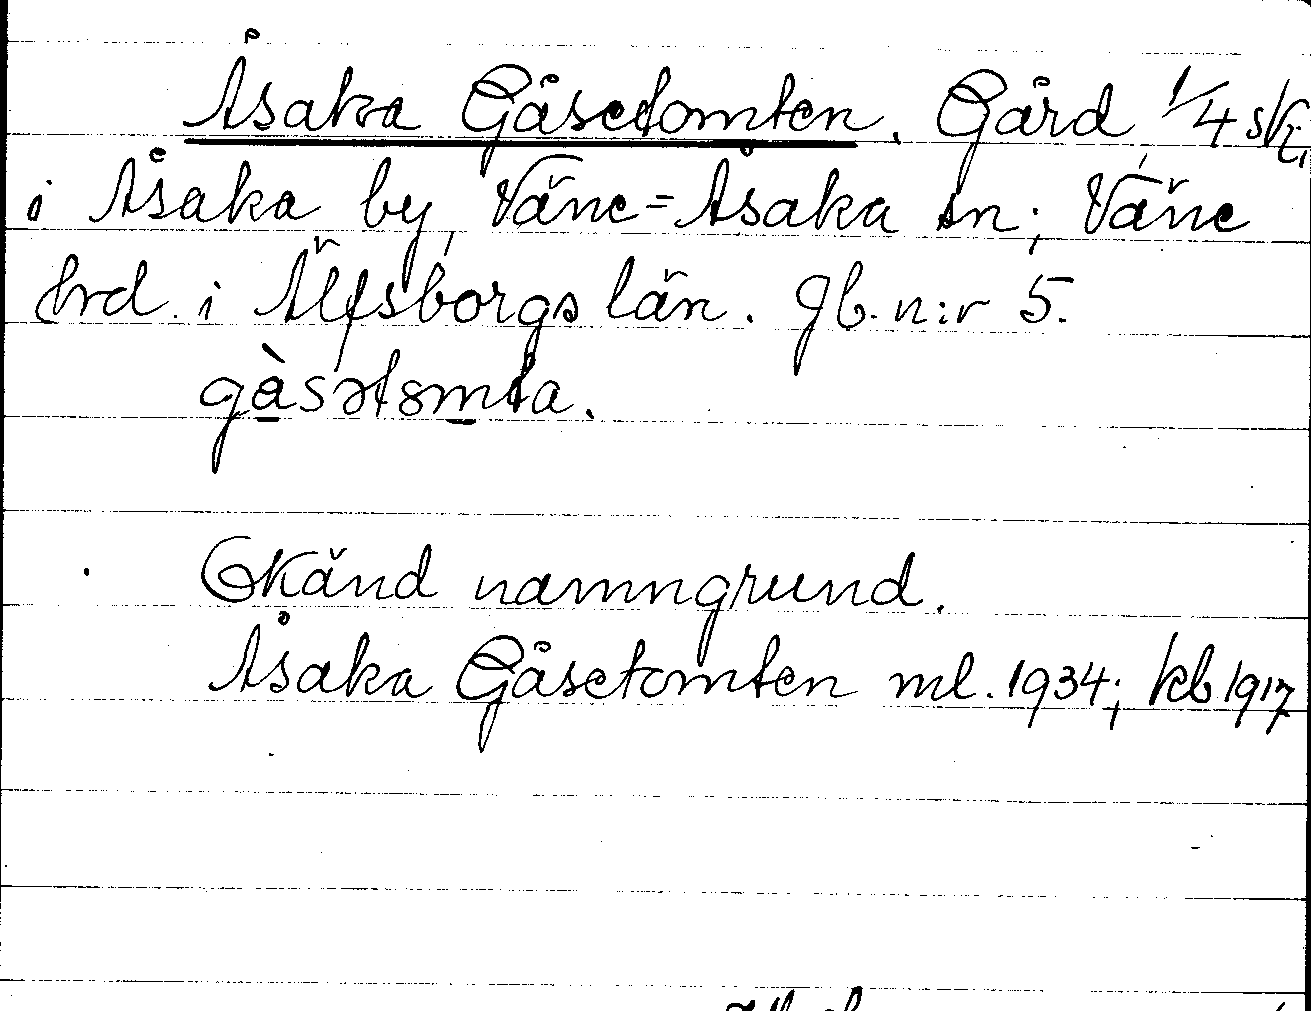 Åsaka Gåsetomten. Gård, 1/4 skt,
i Åsaka by, Väne=Åsaka sn; Väne
hrd. i Älfsborgs län. Jb. n:r 5.
gàsətomta.
Okänd namngrund.
Åsaka Gåsetomten ml. 1934; kb 1917